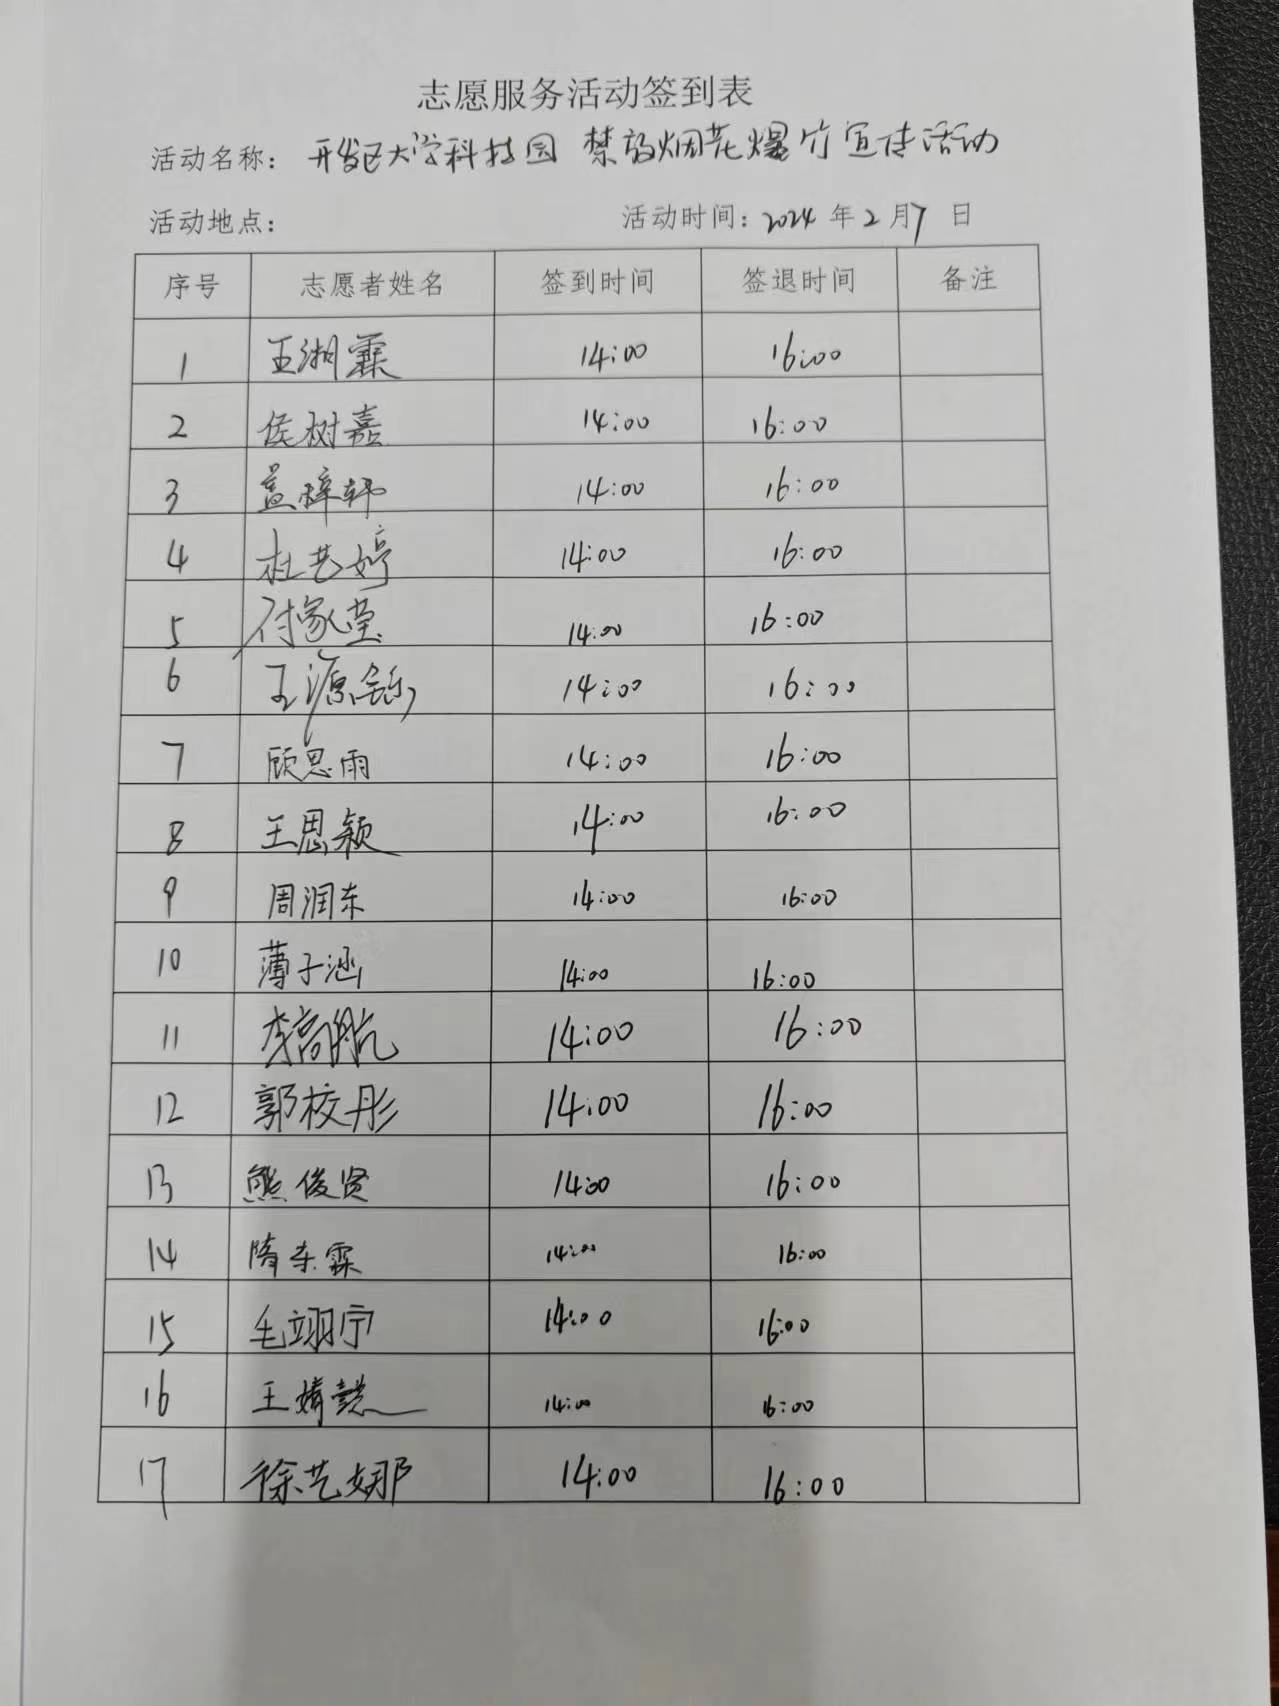 志愿服务活动签到表
活动名称: 开发区大学科技园 禁放烟花爆竹宣传活动
活动地点: 活动时间: 2024 年 2 月 7 日
序号 志愿者姓名 签到时间 签退时间 备注
1 王湘霖 14:00 16:00
2 侯树嘉 14:00 16:00
3 盖梓轩 14:00 16:00
4 杜艺婷 14:00 16:00
5 付家莹 14:00 16:00
6 王源铄 14:00 16:00
7 顾思雨 14:00 16:00
8 王思颖 14:00 16:00
9 周润东 14:00 16:00
10 薄子涵 14:00 16:00
11 李高航 14:00 16:00
12 郭校彤 14:00 16:00
13 熊俊贤 14:00 16:00
14 隋东霖 14:00 16:00
15 毛翊宁 14:00 16:00
16 王婧懿 14:00 16:00
17 徐艺娜 14:00 16:00